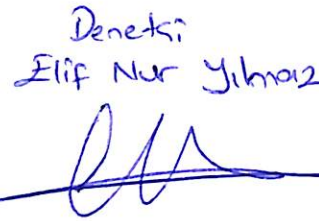 Denetçi
Elif Nur Yılmaz